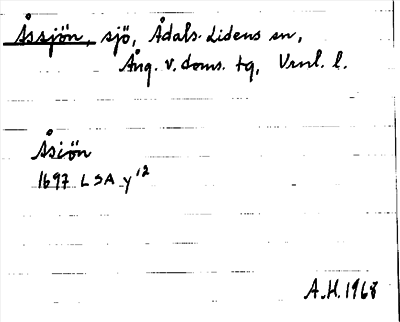 Åssjön, sjö, Ådals-Lidens sn,
Ång. v. doms. tg, Vrnl. l.
Åsiön
1697 LSA y¹²
A.H. 1968